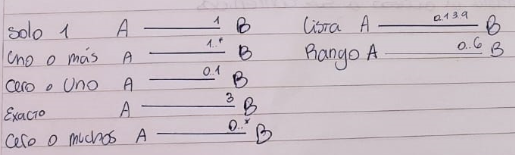 Solo 1 A 1 B
Uno o más A 1..* B
Cero o Uno A 0.1 B
Exacto A 3 B
Cero o muchos A 0..* B
Lista A 0.139 B
Rango A 0.6 B